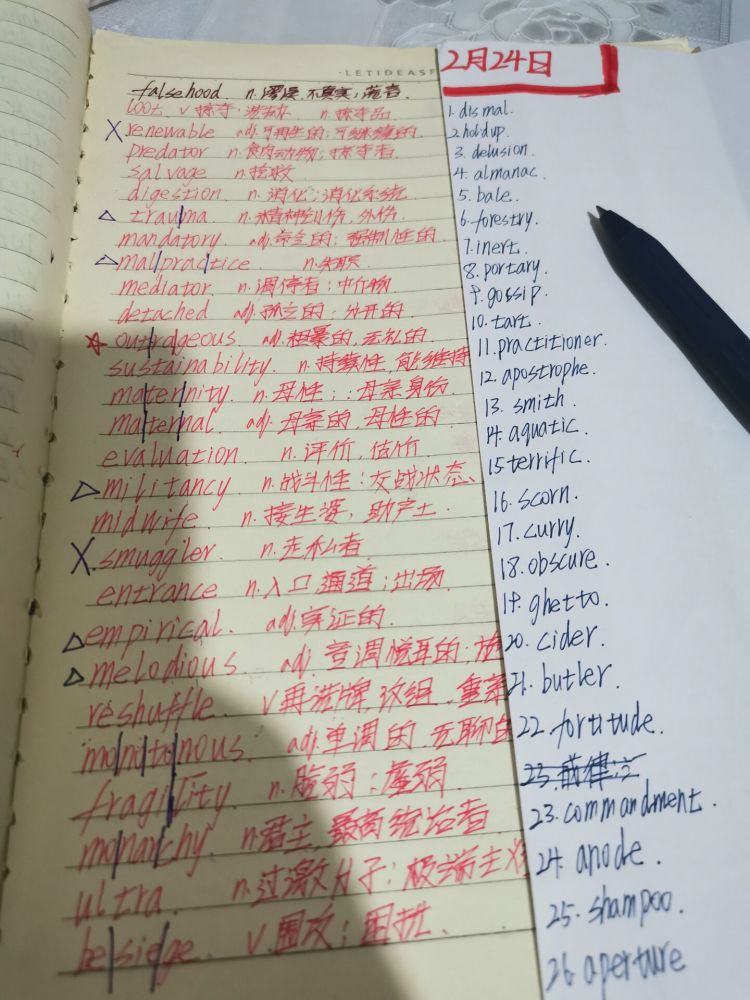 ·LETIDEASF
falsehood n. 谬误、不真实；谎言
loot v 掠夺 n. 掠夺品
renewable adj. 可再生的；可继续的
predator n. 食肉动物；掠夺者
salvage n. 抢救
digestion n. 消化；消化系统
trauma n. 精神创伤，外伤
mandatory. adj. 命令的；强制性的
malpractice n. 失职
mediator n. 调停者；中介物
detached adj. 孤立的；分开的
outrageous adj. 粗暴的，无礼的
sustainability n. 持续性，能维持
maternity n. 母性；母亲身份
maternal adj. 母亲的，母性的
evaluation n. 评价，估价
militancy n. 战斗性；交战状态、
midwife n. 接生婆，助产士
X smuggler n. 走私者
entrance n. 入口 通道；出场
empirical. adj. 实证的
melodious adj. 音调悦耳的；
reshuffle. v 再洗牌，改组，重新
monotonous adj. 单调的，无聊的
fragility. n. 脆弱；虚弱
monarchy n 君主，最高统治者
ultra n. 过激分子；极端主义
besiege v. 围攻；困扰
2月24日
1. dismal.
2 holdup.
3. delusion.
4. almanac.
5. bale.
6. forestry.
7. inert.
8. portary.
9. gossip.
10. tart.
11. practitioner.
12. apostrophe.
13. smith.
14. aquatic.
15. terrific.
16. scorn.
17. curry.
18. obscure.
19. ghetto.
20. cider.
21. butler.
22. fortitude.
23. commandment.
24. anode.
25. shampoo.
26. aperture